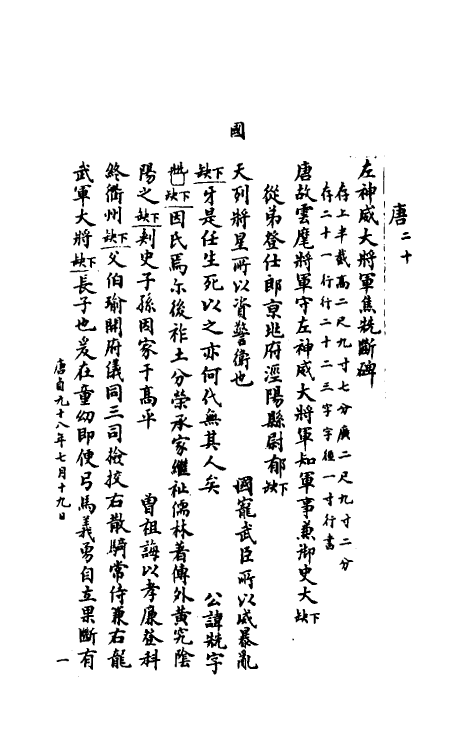 唐二十
左神威大將軍焦兟斷碑
存上半截高二尺九寸七分廣二尺九寸二分
存二十一行行二十二三字字徑一寸行書
唐故雲麾將軍守左神威大將軍知軍事兼御史大缺下
從弟登仕郎京兆府涇陽縣尉郁缺下
國
天列將星所以資警衛也 國寵武臣所以威暴亂
缺下牙是任生死以之亦何代無其人矣 公諱兟字
兟缺下因氏焉尔後祚土分榮承家繼祉儒林著傳外黃究陰
陽之缺下刺史子孫因家于高平 曾祖誨以孝廉登科
終衢州缺下父伯瑜開府儀同三司檢挍右散騎常侍兼右龍
武軍大將缺下長子也爰在童幼即便弓馬義勇自立果斷有
唐貞元十八年七月十九日
一